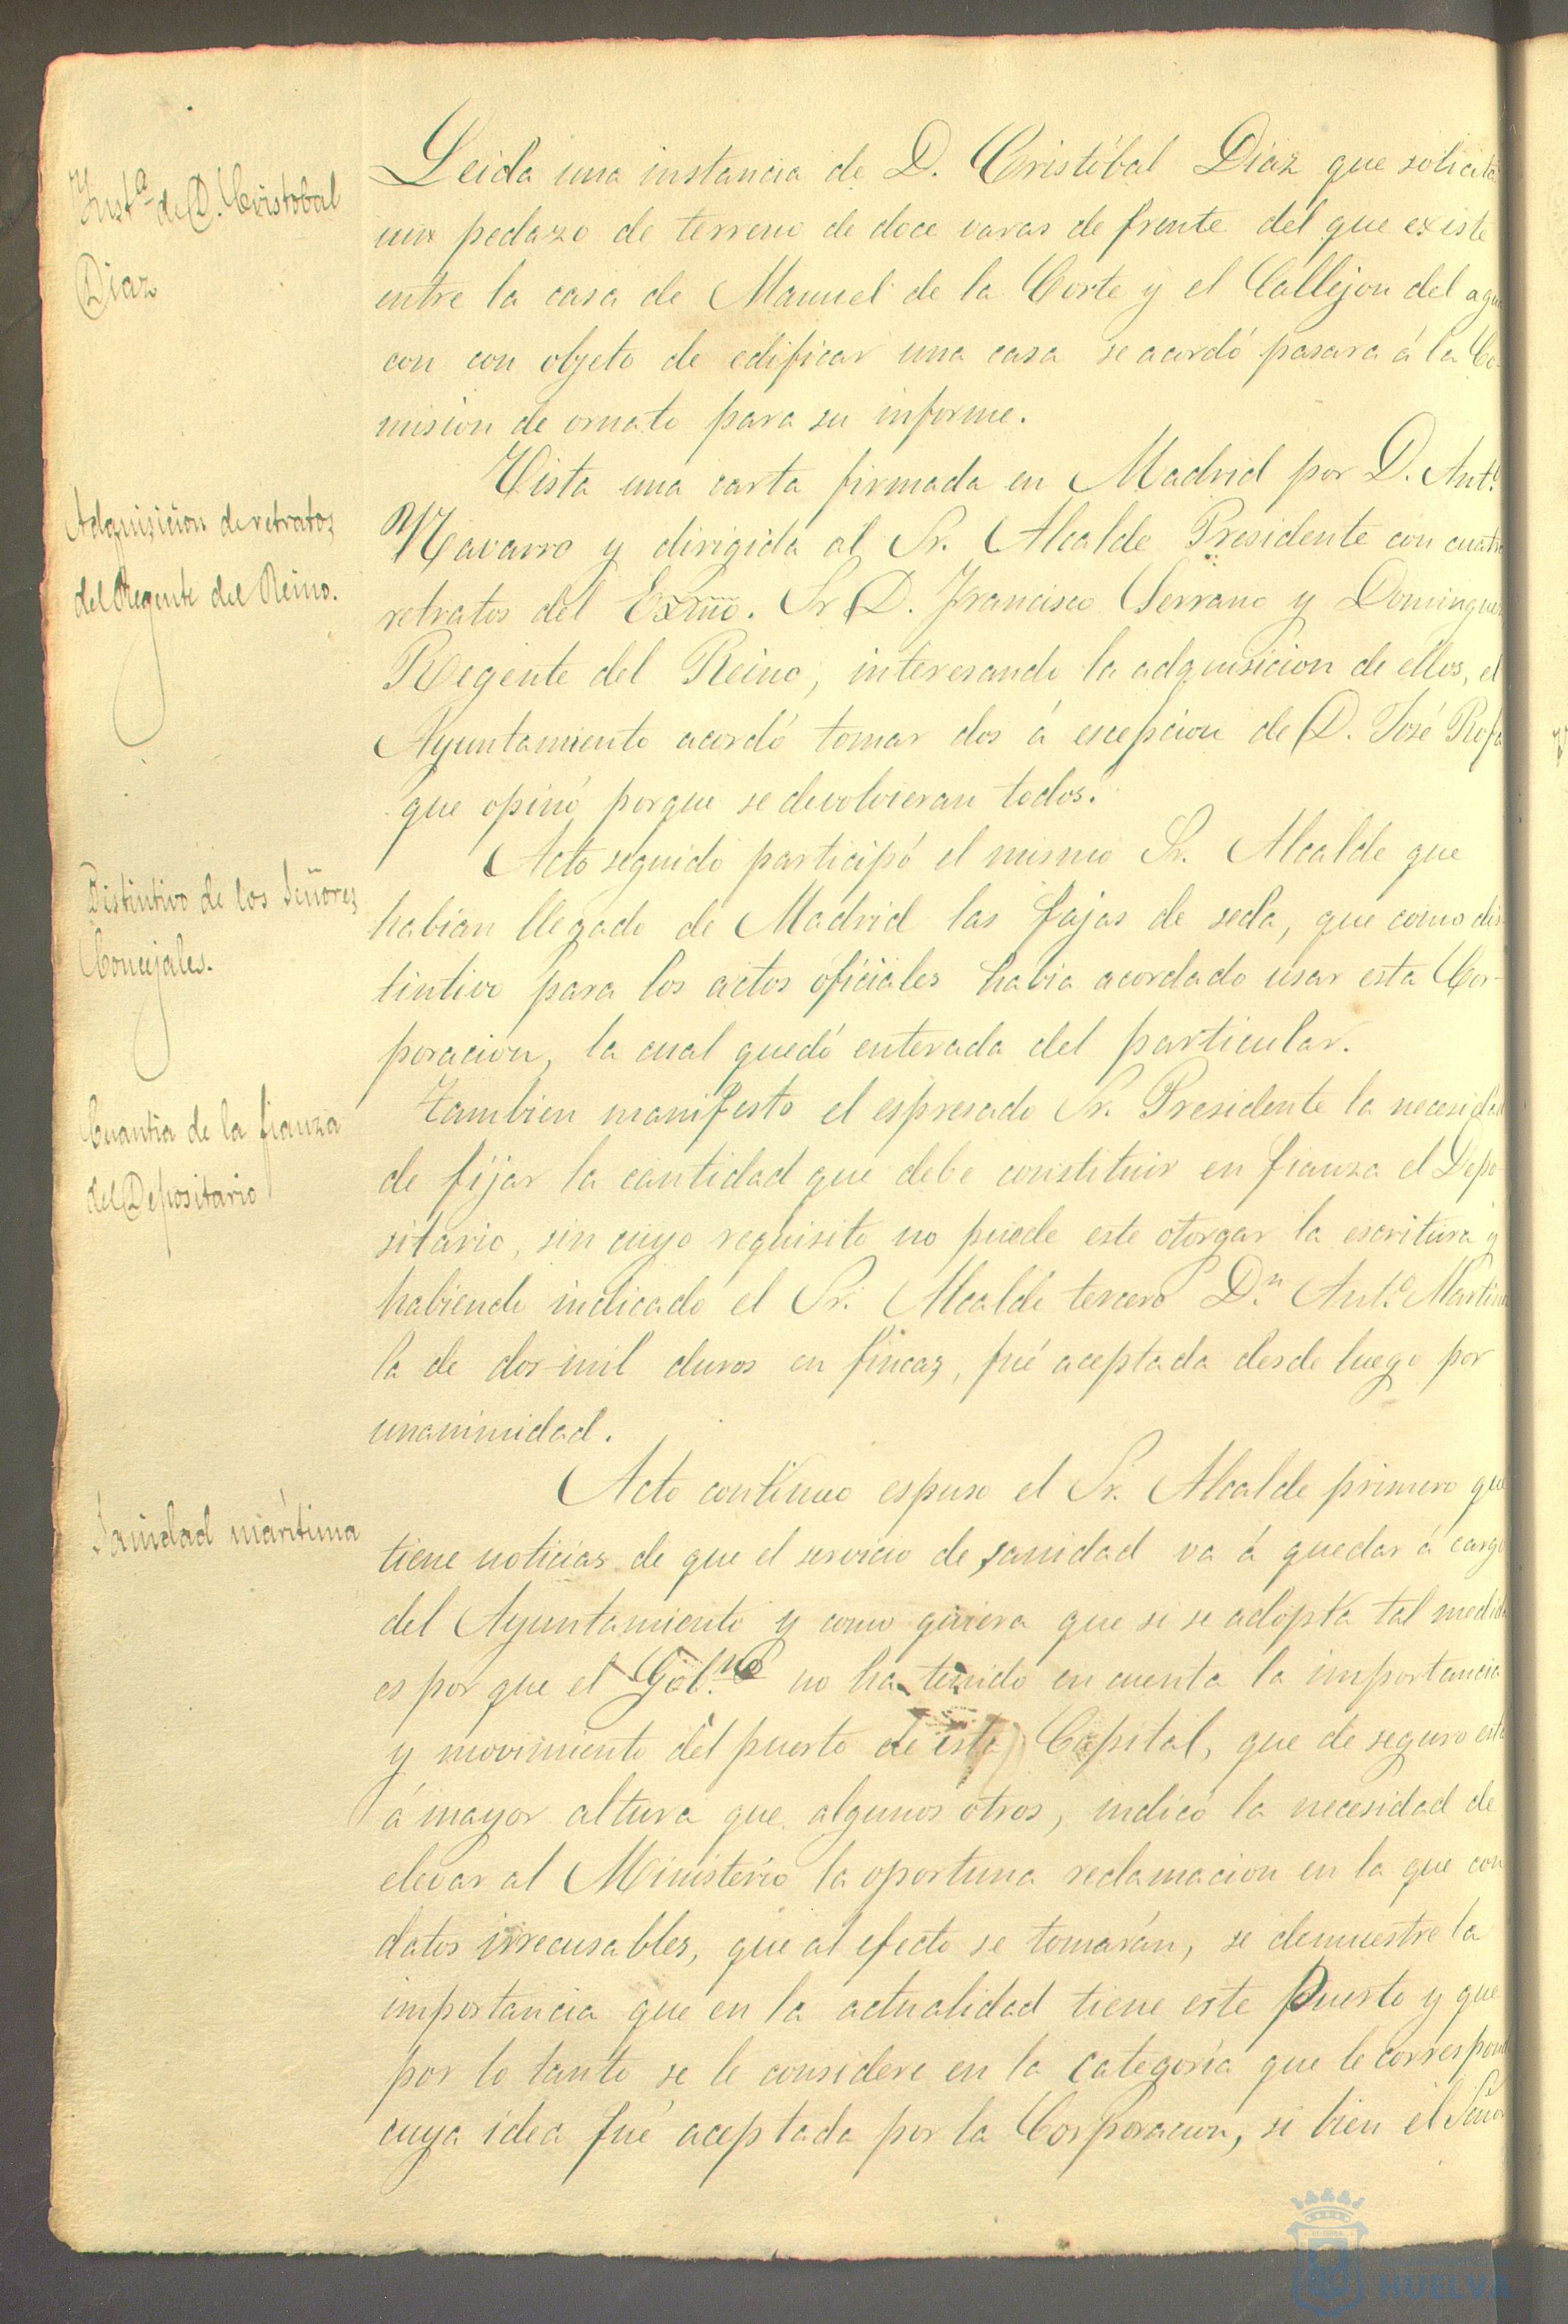 Inst.ª de D. Cristobal
Diaz
Leida una instancia de D. Cristóbal Diaz que solicita
un pedazo de terreno de doce varas de frente del que existe
entre la casa de Manuel de la Corte y el Callejon del agua
con con objeto de edificar una casa se acordó pasara á la Co-
mision de ornato para su informe.
Adquisicion de retratos
del Regente del Reino.
Vista una carta firmada en Madrid por D. Ant.º
Navarro y dirigida al Sr. Alcalde Presidente con cuatro
retratos del Exmo. Sr D. Francisco Serrano y Dominguez
Regente del Reino, interesando la adquisicion de ellos, el
Ayuntamiento acordó tomar dos á escepcion de D. José
que opinó porque se devolvieran todos.
Distintivo de los Señores
Concejales.
Acto seguido participó el mismo Sr. Alcalde que
habian llegado de Madrid las fajas de seda, que como dis
tintivo para los actos oficiales habia acordado usar esta Cor-
poracion, la cual quedó enterada del particular.
Cuantia de la fianza
del Depositario
Tambien manifesto el espresado Sr. Presidente la necesidad
de fijar la cantidad que debe constituir en fianza el Depo
sitario, sin cuyo requisito no puede este otorgar la escritura y
habiendo indicado el Sr. Alcalde tercero D.n Ant.º Martin
la de dos mil duros en fincas, fué aceptada desde luego por
unanimidad.
Sanidad marítima
Acto continuo espuso el Sr. Alcalde primero que
tiene noticias de que el servicio de sanidad va á quedar á cargo
del Ayuntamiento y como quiera que si se adopta tal medida
es por que el Gob.no no ha tenido en cuenta la importancia
y movimiento del puerto de esta Capital, que de seguro está
á mayor altura que algunos otros, indicó la necesidad de
elevar al Ministerio la oportuna reclamacion en la que con
datos irrecusables, que al efecto se tomarán, se demuestre la
importancia que en la actualidad tiene este Puerto y que
por lo tanto se le considere en la categoría que le corresponde
cuya idea fué aceptada por la Corporacion, si bien el Señor
HUELVA